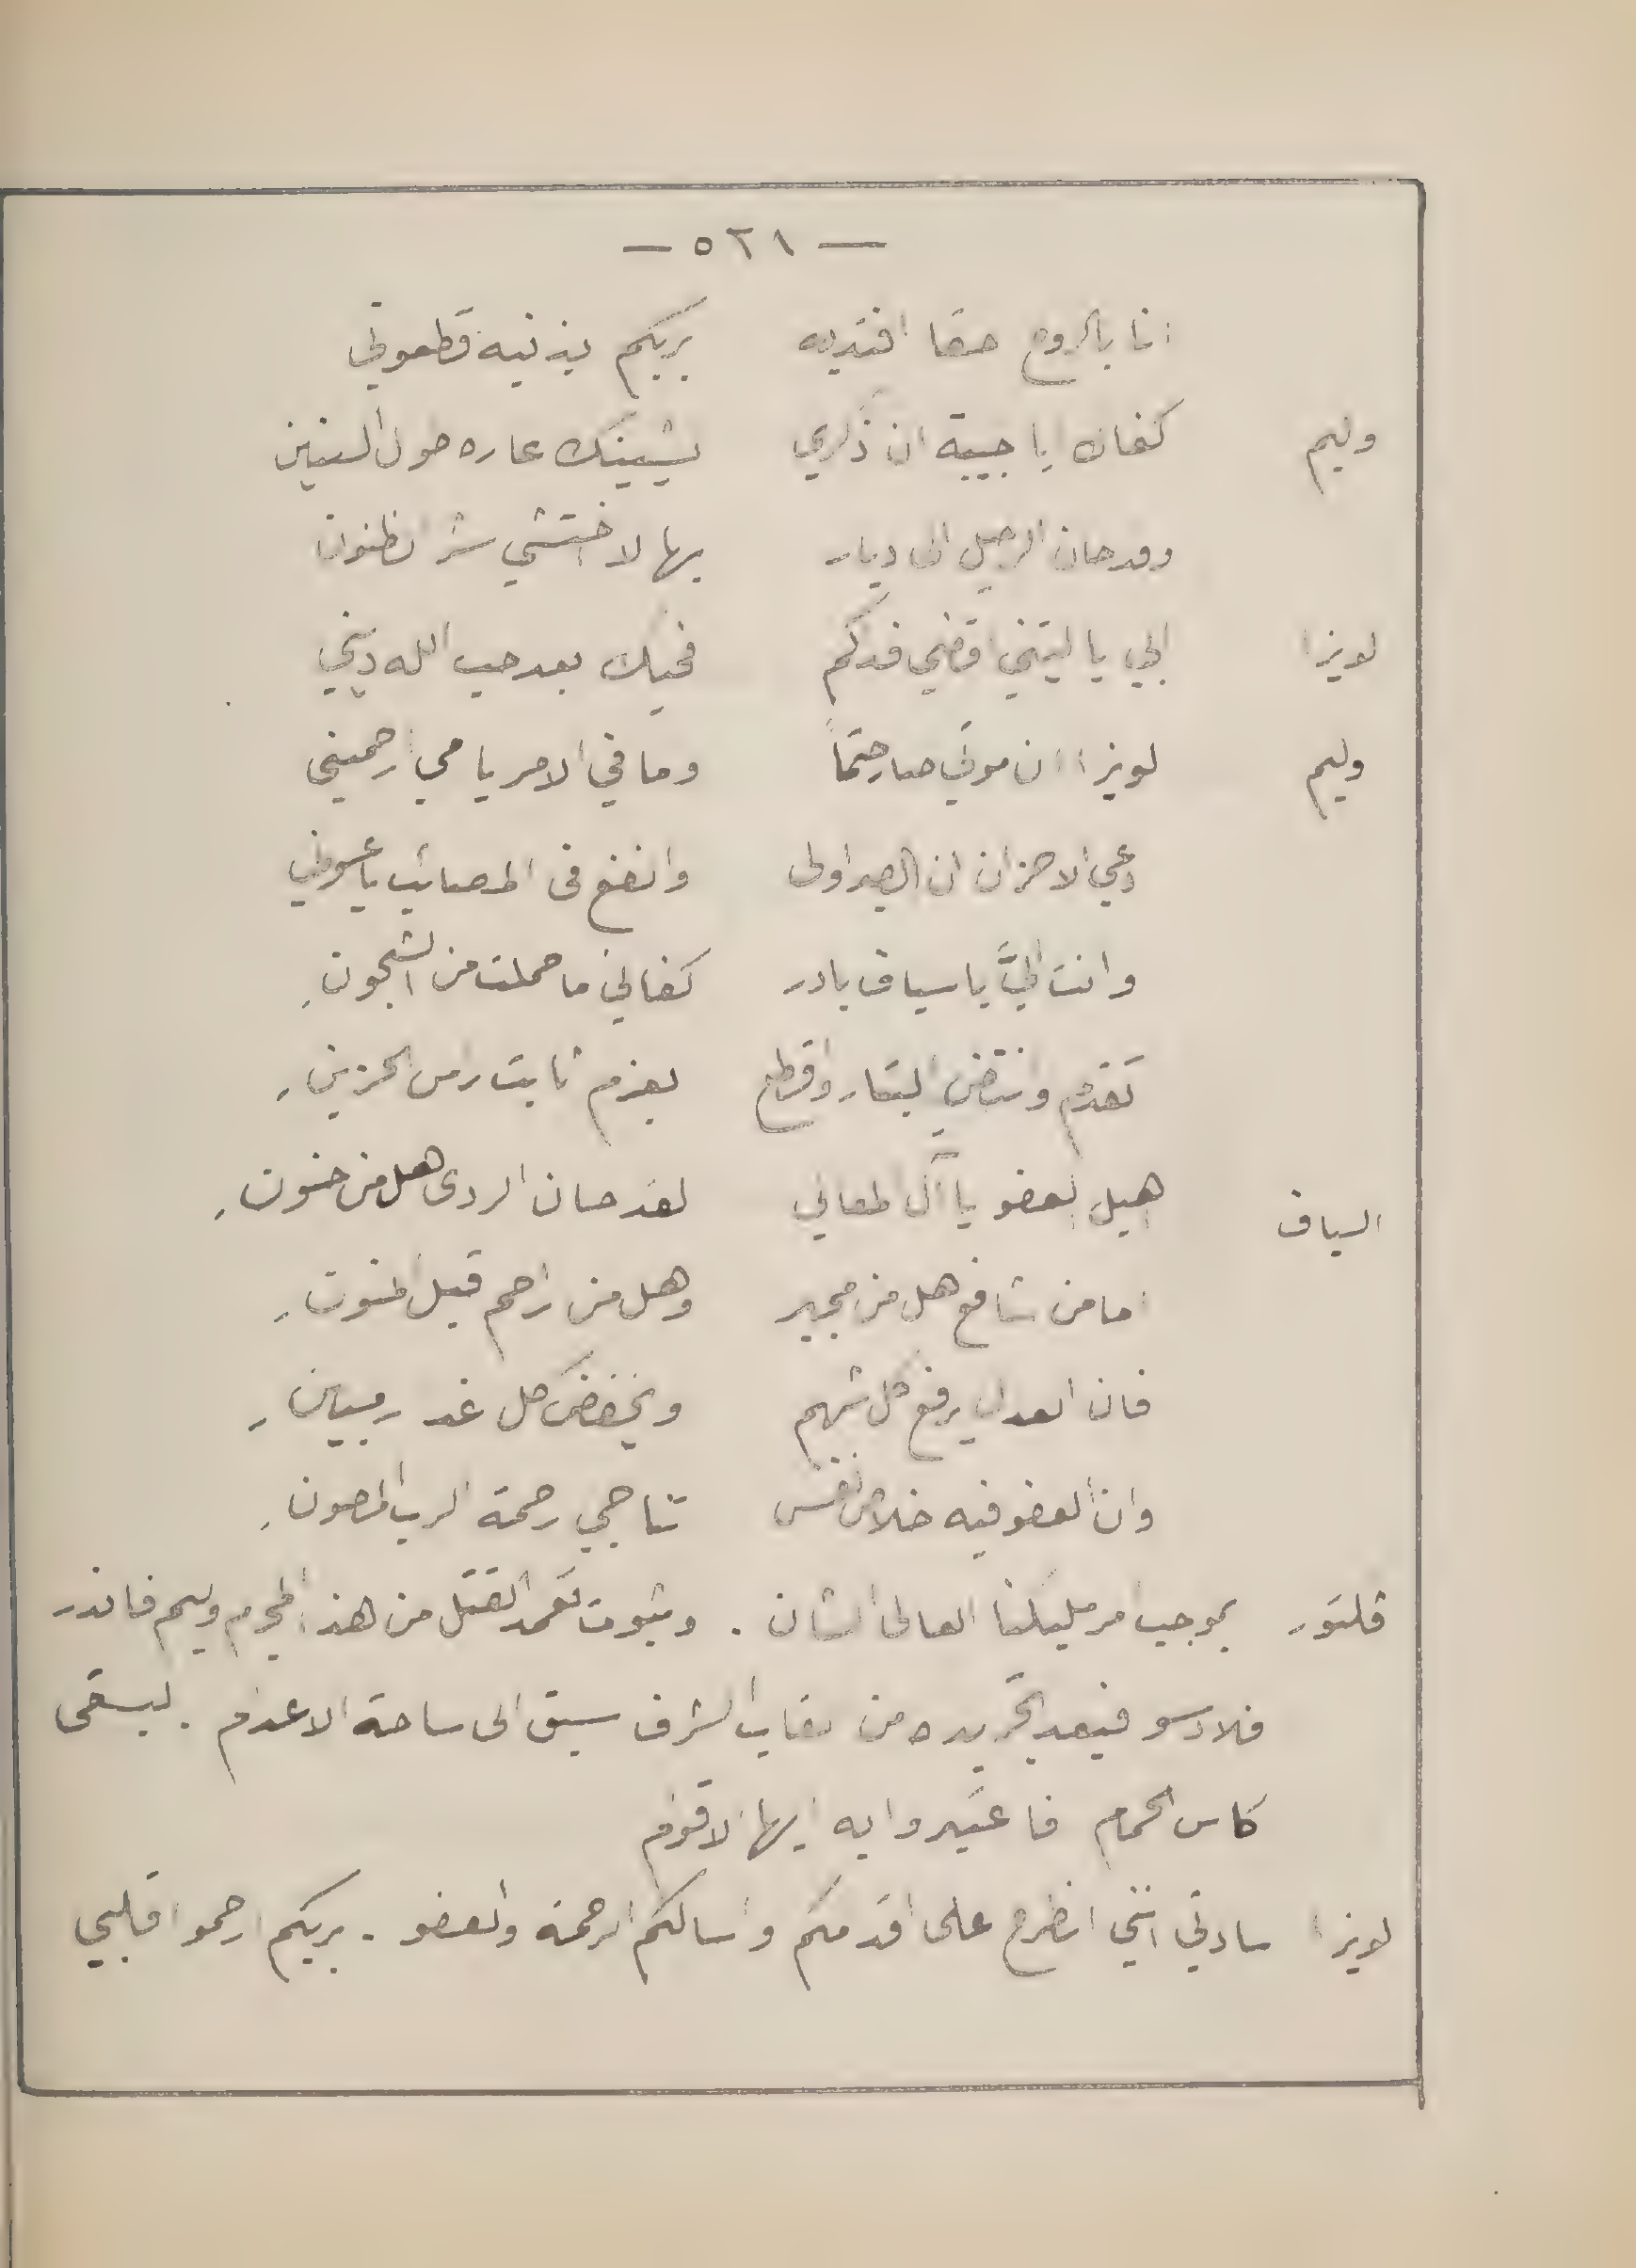 — ٥٢١ —
انا بالروح حقا افتديه بربكم بذنبه قطعوني
وليم كفاك يا حبيبة ان ذكري يشينك عاره حول السنين
وقد حان الرحيل الى ديار بها لا اختشي شر الظنون
لويزا ابي يا ليتني اقضي فداكم فحبك بعد حب الله ديني
وليم لويزا ان موتي صار حتماً وما في الامر يا امي ارحميني
دعي الاحزان ان الصبر اولى وانفع في المصائب يا عيوني
وانت اليَّ يا سياف بادر كفاني ما حملت من الشجونِ
تقدم وانتضي البتار واقطع بعزم ثابت راس الحزينِ
السياف اهيل العفو يا آل المعاني لقد حان الردى هل من حنونِ
اما من شافع هل من مجير وهل من راحم قبل المنونِ
فان العدل يرفع كل شهم ويخفض كل غدر مبينِ
وان العفو فيه خلاص نفس تناجي رحمة الرب المصونِ
قلتور بموجب امر مليكنا العالي الشان . وثبوت تعمد القتل من هذا المجرم وليم فاندر
فلادسو فبعد تجريده من القاب الشرف سيق الى ساحة الاعدام . ليسقى
كاس الحمام فاعتبروا به ايها الاقوام
لويزا سادتي انني انطرح على اقدامكم واسالكم الرحمة والعفو . بربكم ارحموا قلبي